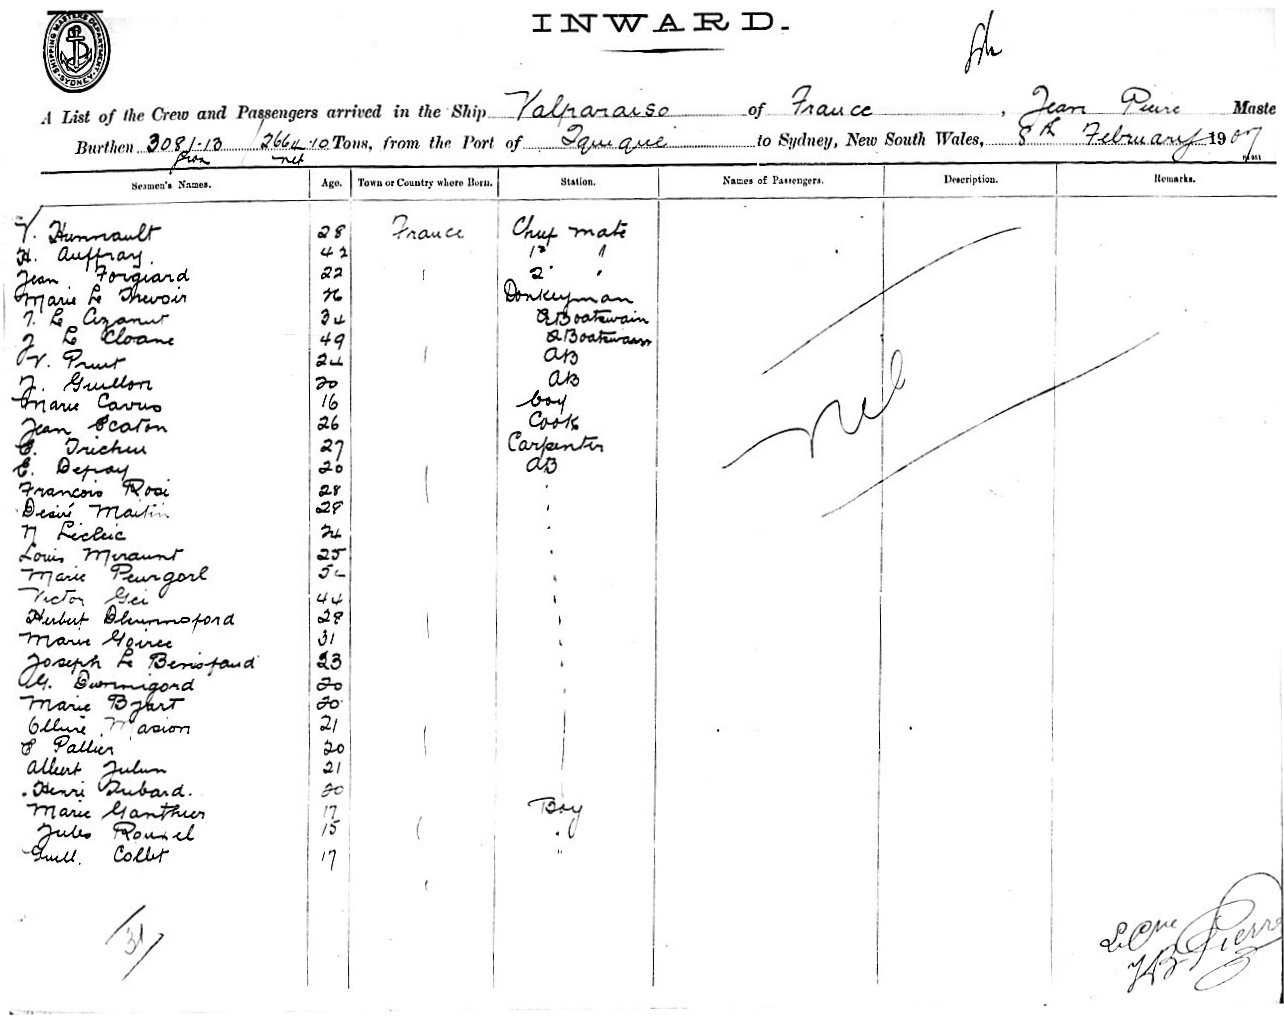 INWARD.
SHIPPING MASTERS DEPARTMENT SYDNEY
A List of the Crew and Passengers arrived in the Ship Valparaiso of France, Jean Pierre Maste
Burthen 3081.13 2664.10 Tons, from the Port of Iquique to Sydney, New South Wales, 8th February 1907
gross net
Seamen's Names. Age. Town or Country where Born. Station. Names of Passengers. Description. Remarks.
V. Hunnault 28 France Chief mate
H. Auffray. 42 1st "
Jean Forgiard 22 2 "
Marie Le Thevoir Donkeyman
Le Azanut 34 Boatswain
Le Cloane 49 Boatswain
V. Pruet 24 AB
Guillon 20 AB
Marie Cavus 16 boy
Jean Scaton 26 Cook
E. Tricheu 27 Carpenter
E. Depray 20 AB
Francois Rosi 28
Desiré Martin 28
N Lecleic 24
Louis Miraunt 25
Marie Peurgorl
Victor Gei 44
Herbert 28
Marie Goiree 31
Joseph Le 23
G. Dumnigord 20
Marie Bzart 20
Masion 21
E Pallier 20
Albert Julun 21
Henri Tubard. 20
Marie Ganthier 17 Boy
Jules Rouxel 15 "
Guill. Collet 17 "
nil
31
Le Cne
JB Pierre